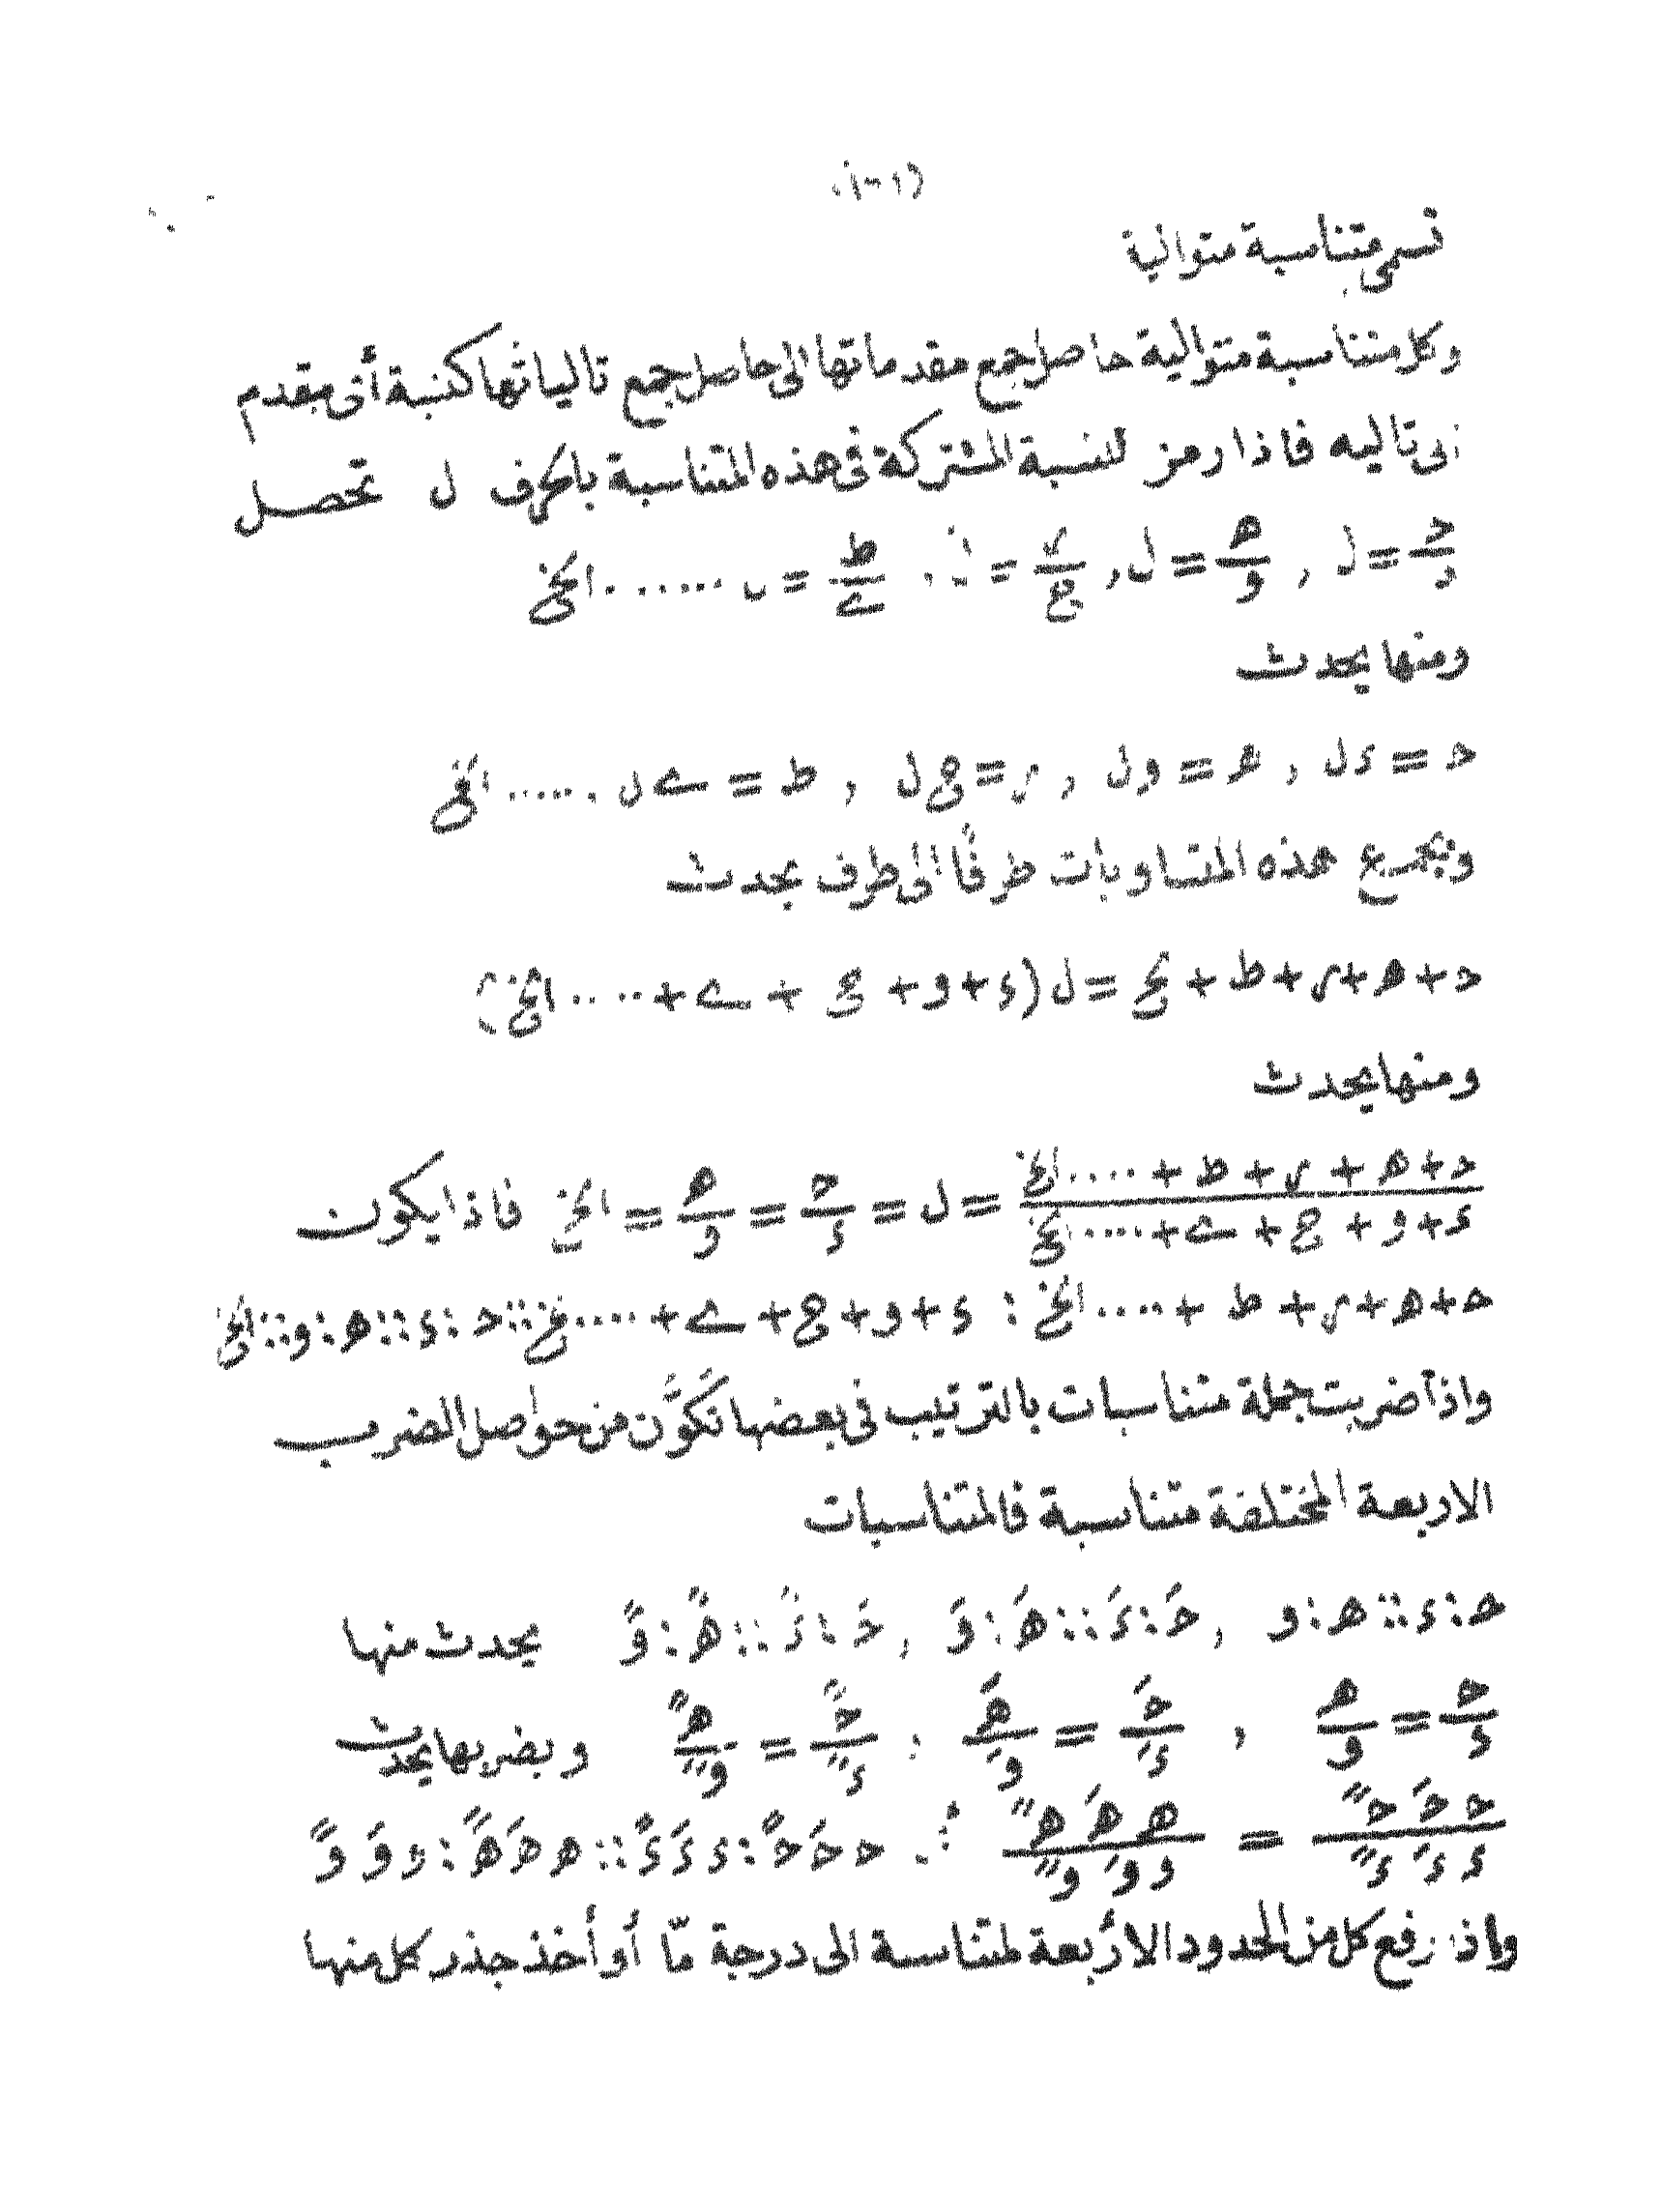 تسمى متناسبة متوالية
وكل متناسبة متوالية حاصل جمع مقدماتها الى حاصل جمع تالياتها كنسبة أى مقدم
الى تاليه فاذا رمز للنسبة المشتركة فى هذه المتناسبة بالحرف ل تحصل
حـ/د = ل , هـ/و = ل , ر/ح = ل , ط/ى = ل ...... الخ
ومنها يحدث
حـ = د ل , هـ = و ل , ر = ح ل , ط = ى ل ...... الخ
وبجمع هذه المتساويات طرفًا الى طرف يحدث
حـ + هـ + ر + ط + الخ = ل (د + و + ح + ى + .... الخ)
ومنها يحدث
(حـ + هـ + ر + ط + .... الخ)/(د + و + ح + ى + .... الخ) = ل = حـ/د = هـ/و = الخ فاذا يكون
حـ + هـ + ر + ط + .... الخ : د + و + ح + ى + .... الخ :: حـ : د :: هـ : و :: الخ
واذا ضربت جملة متناسبات بالترتيب فى بعضها تكَوَّن من حواصل الضرب
الاربعة المختلفة متناسبة فالمتناسبات
حـ : د :: هـ : و , حـَ : دَ :: هـَ : وَ , حـً : دً :: هـً : وً يحدث منها
حـ/د = هـ/و , حـَ/دَ = هـَ/وَ , حـً/دً = هـً/وً وبضربها يحدث
حـ حـَ حـً/د دَ دً = هـ هـَ هـً/و وَ وً ∴ حـ حـَ حـً : د دَ دً :: هـ هـَ هـً : و وَ وً
واذا رفع كل من الحدود الأربعة لمتناسبة الى درجة مّا أو أخذ جذر كل منها